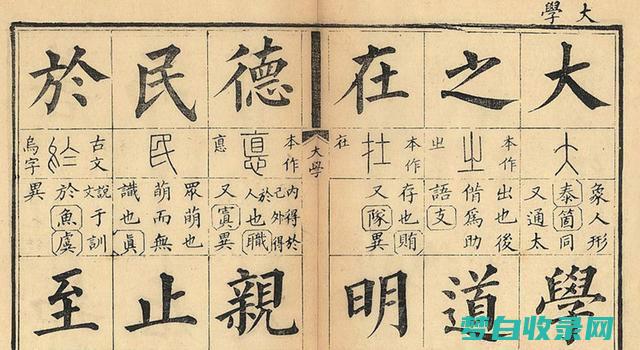 大學
大
象人形
泰箇同
又通太
學
之
本作
㞢
出也後
偕為助
語支
道
在
本作
在
存也賄
又隊異
明
大學
德
本作
悳
內得於
己外得
於人也職
又寘異
親
民
眾萌也
萌而無
識也眞
止
於
古文
烏字
說文于訓
於魚虞
異
至
梦白收录网